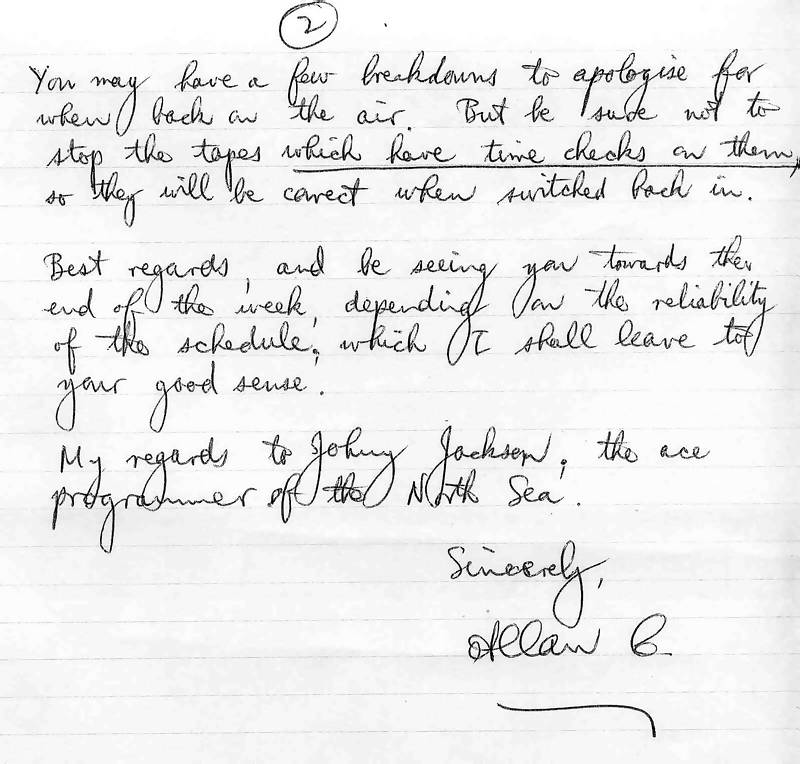 2
You may have a few breakdowns to apologise for
when back on the air. But be sure not to
stop the tapes which have time checks on them,
so they will be correct when switched back in.
Best regards, and be seeing you towards the
end of the week, depending on the reliability
of the schedule, which I shall leave to
your good sense.
My regards to Johny Jackson, the ace
programmer of the North Sea.
Sincerely,
Allan C.